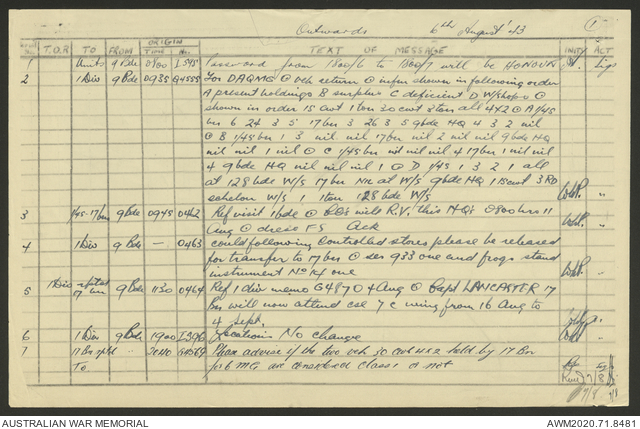 Outwards 6th August '43 1
T.O.R TO FROM ORIGIN TIME No. TEXT OF MESSAGE INITY ACT
1 Units 9 Bde 0700 I595 Password from 1800/6 to 1800/7 will be HONOUR Sigs
2 1 Div 9 Bde 0935 Q4555 For DAQMG @ veh return @ infm shown in following order
A present holdings B surplus C deficient D W/shops @
shown in order 15 cwt 1 ton 30 cwt 3 tons all 4X2 @ A 1/45
bn 6 24 3 5 17 bn 3 26 3 5 9 bde HQ 4 3 2 nil
@ B 1/45 bn 1 3 nil nil 17 bn nil 2 nil nil 9 bde HQ
nil nil 1 nil @ C 1/45 bn nil nil nil 4 17 bn 1 nil nil
4 9 bde HQ nil nil nil 1 @ D 1/45 1 3 2 1 all
at 128 bde W/S 17 bn NR at W/S 9 bde HQ 1 15 cwt 3RD
echelon W/S 1 1 ton 128 bde W/S "
3 1/45-17 bn 9 Bde 0945 0462 Ref visit 1 bde @ COs will R.V. this HQs 0800 hrs 11
Aug @ dress FS Ack "
4 1 Div 9 Bde — 0463 could following controlled stores please be released
for transfer to 17 bn @ ser 933 one and frogs stand
instrument No one "
5 1 Div reptd 17 bn 9 Bde 1130 0464 Ref 1 div memo G4870 4 Aug @ Capt LANCASTER 17
Bn will now attend cse 7 C wing from 16 Aug to
4 Sept.
6 1 Div 9 Bde 1900 I596 Locations No change "
7 17 Bn reptd " 2040 Q4569 Please advise if the two veh 30 cwt 4x2 held by 17 Bn
To for 6 MG are considered class 1 or not 7/8
AUSTRALIAN WAR MEMORIAL AWM2020.71.8481